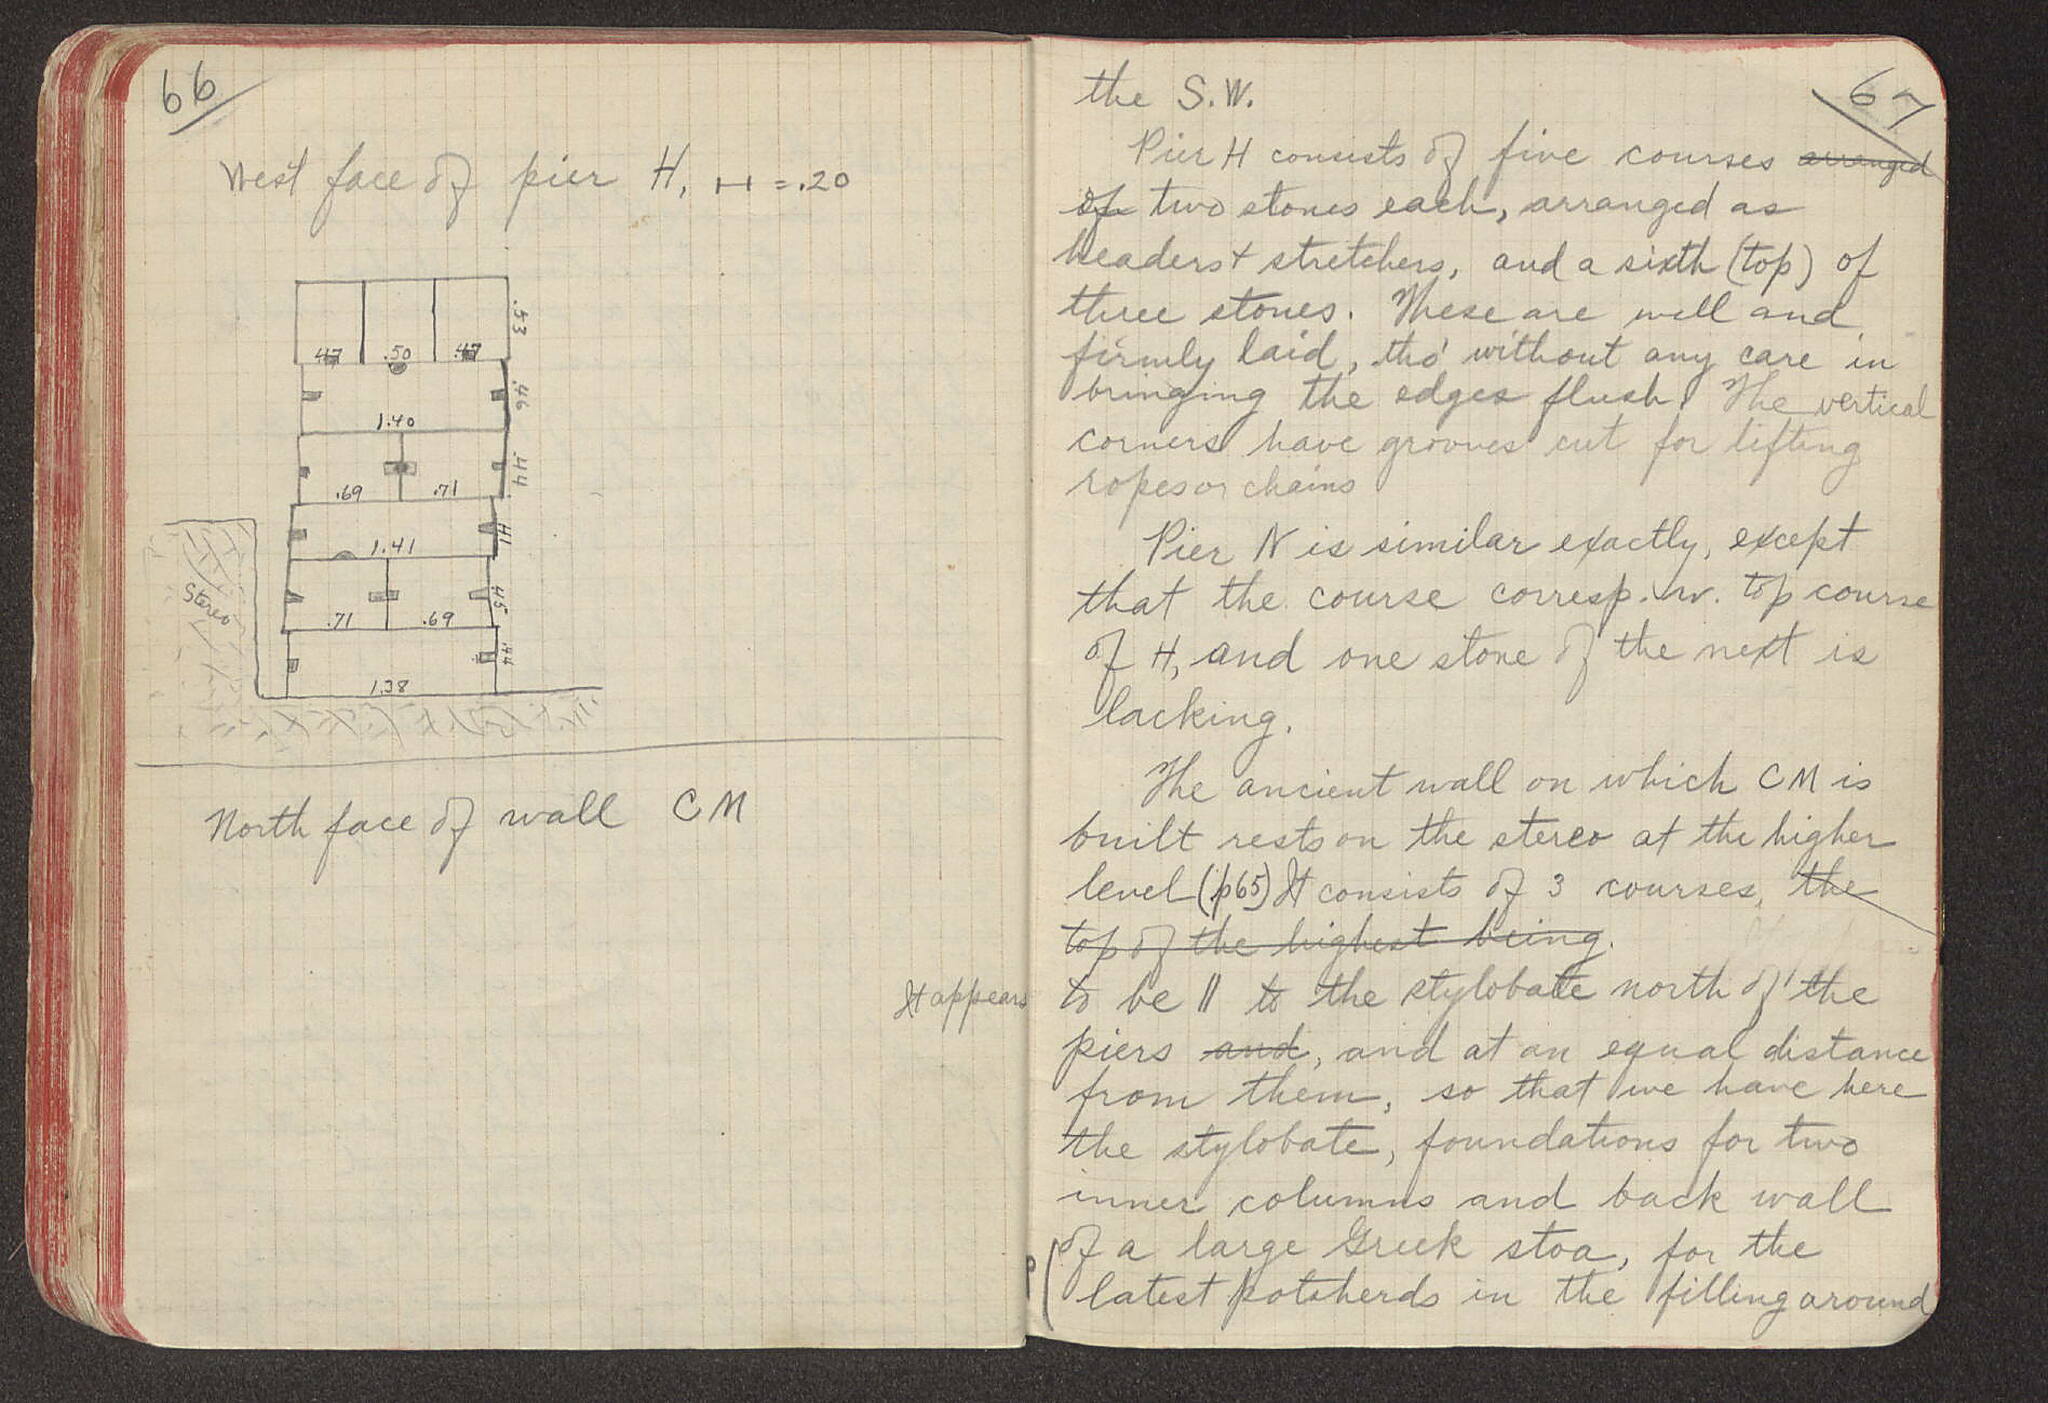 66
West face of pier H, ⊢⊣ = .20
.53
.47 .50 .47
.46
1.40
.44
.69 .71
.41
1.41
Stereo
.45
.71 .69
.44
1.38
North face of wall CM
It appears
67
the S.W.
Pier H consists of five courses arranged
of two stones each, arranged as
headers + stretchers, and a sixth (top) of
three stones. These are well and
firmly laid, tho' without any care in
bringing the edges flush. The vertical
corners have grooves cut for lifting
ropes or chains
Pier N is similar exactly, except
that the course corresp. w. top course
of H, and one stone of the next is
lacking.
The ancient wall on which CM is
built rests on the stereo at the higher
level (p65) It consists of 3 courses, the
top of the highest being.
to be || to the stylobate north of the
piers and, and at an equal distance
from them, so that we have here
the stylobate, foundations for two
inner columns and back wall
of a large Greek stoa, for the
latest potsherds in the filling around